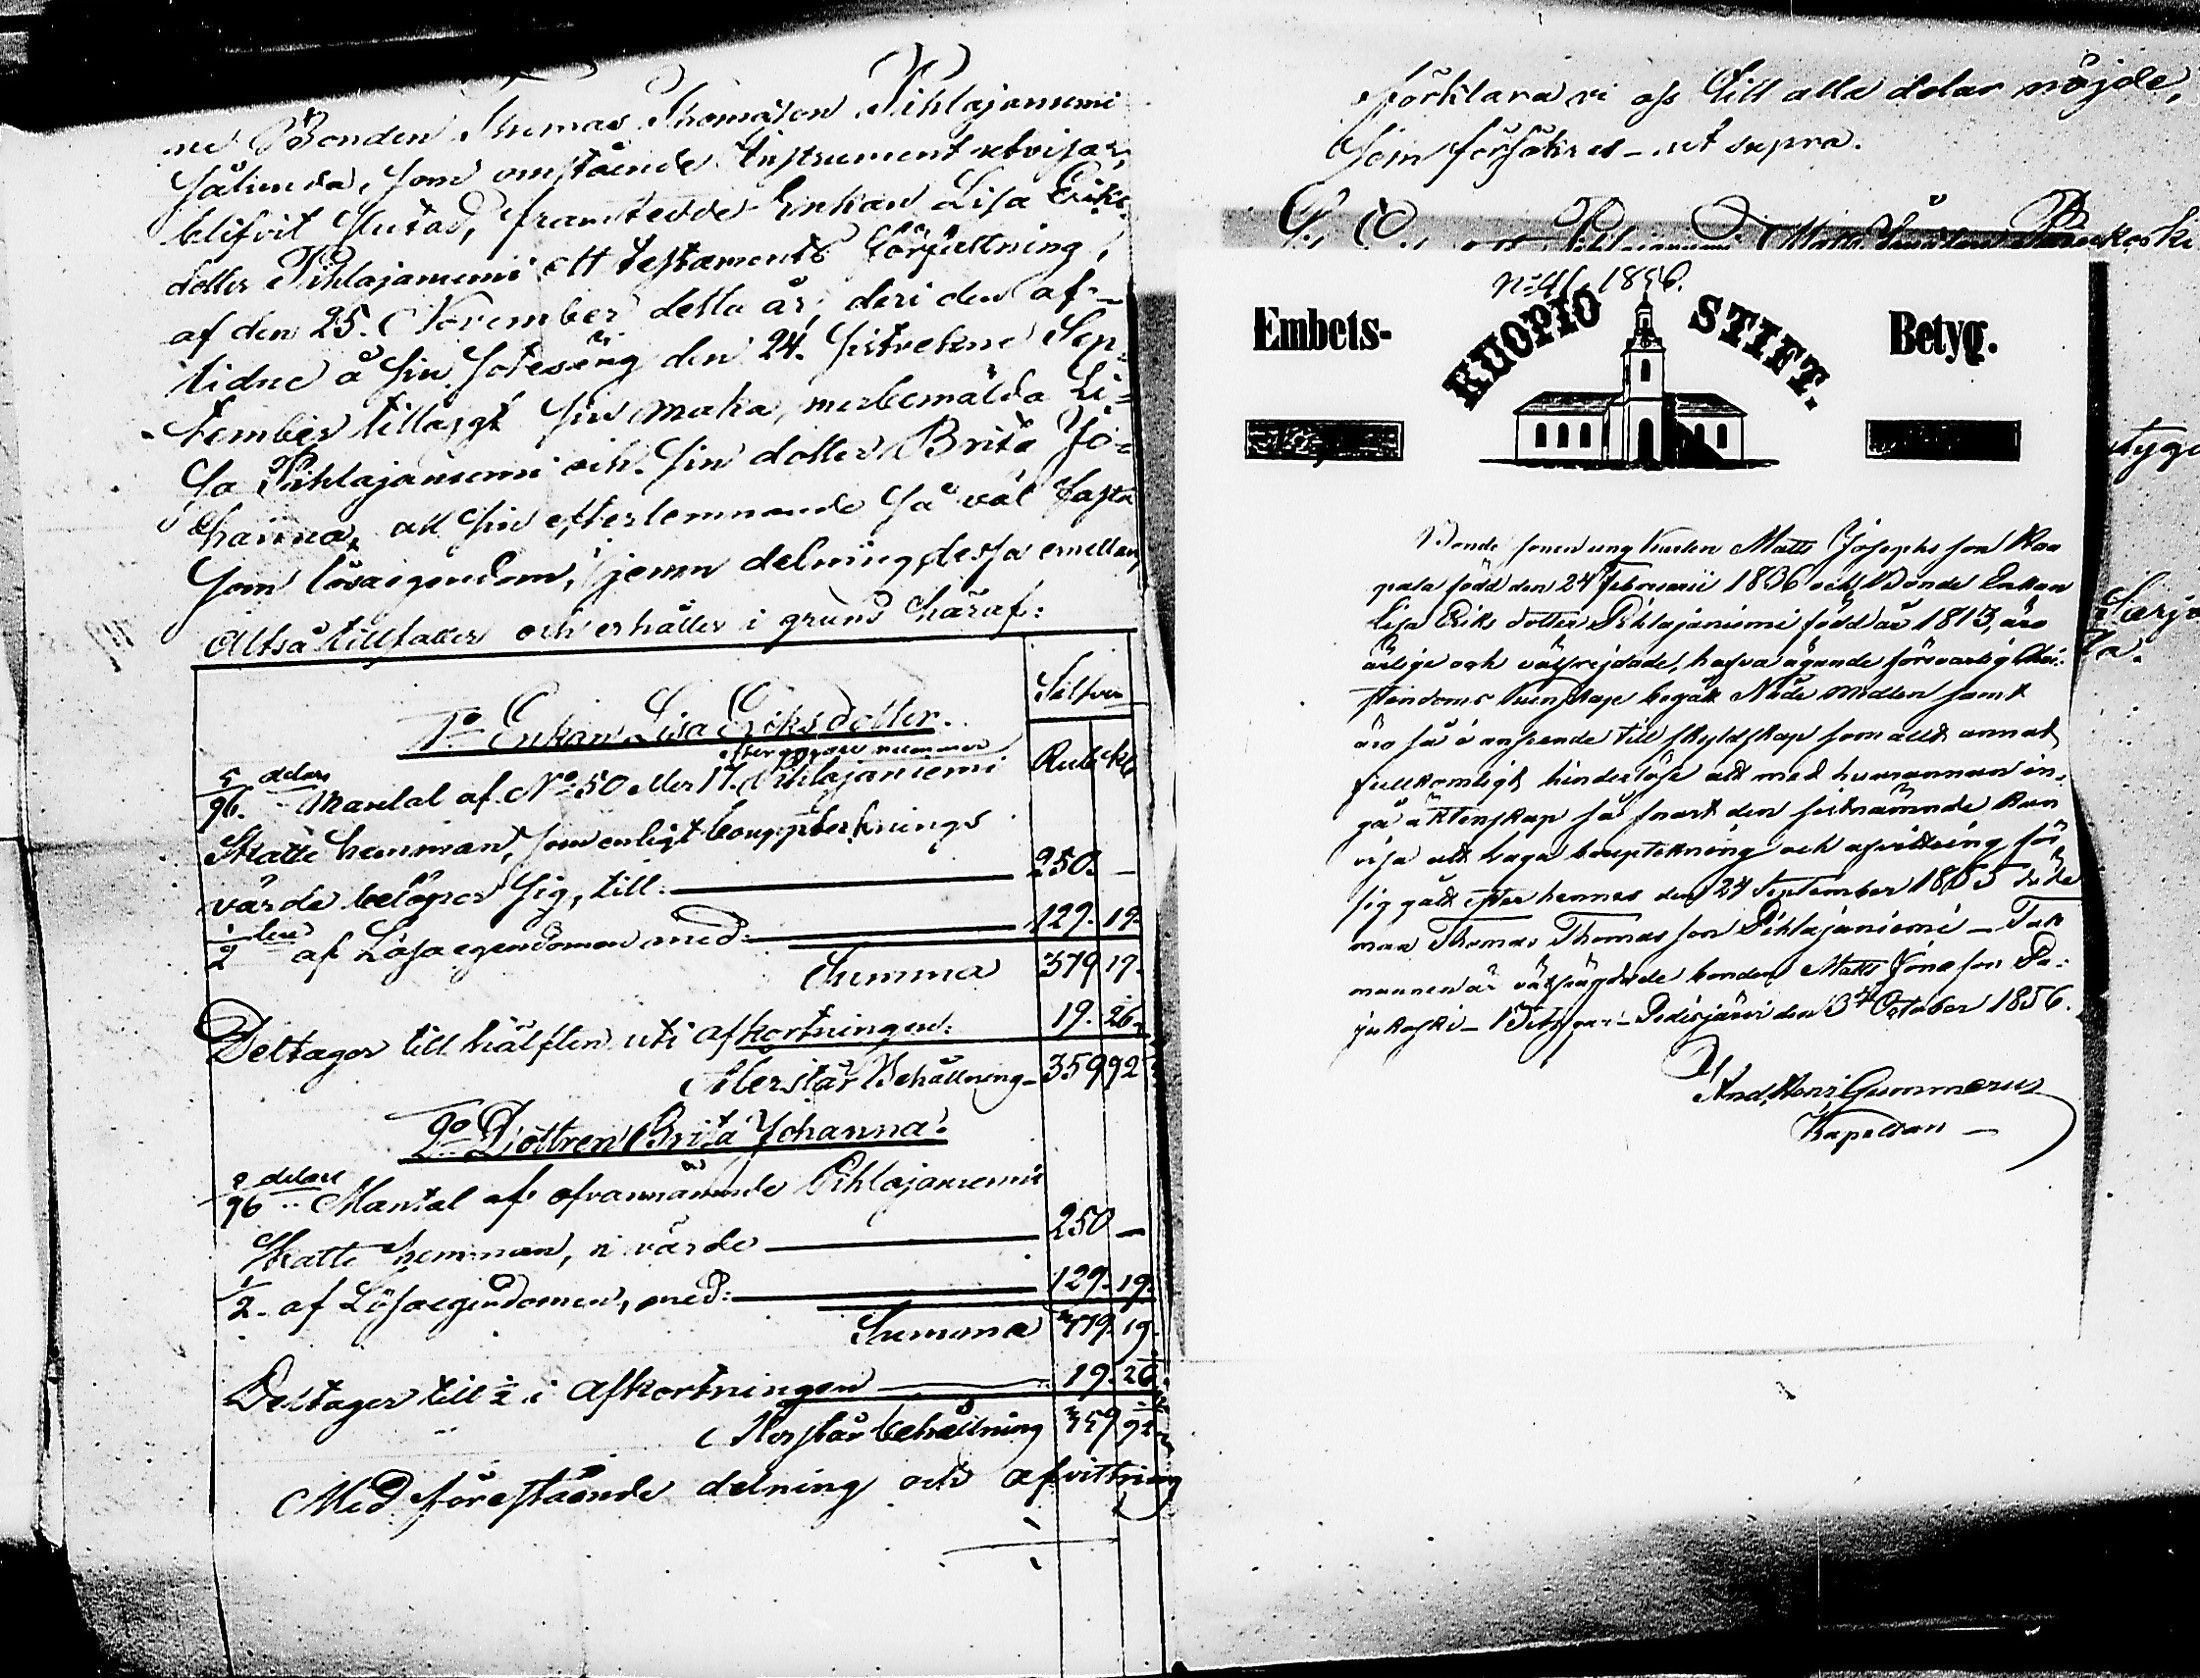 ne Bonden Thomas Thomasson Pihlajaniemi
sålunda, som omstående Instrument utvisar,
blifvit slutad, framtedde Enkan Lisa Eriks-
dotter Pihlajaniemi ett testaments författning,
af den 25. November detta år, deri den af-
lidne å sin sotesäng den 24. sistvekne Sep-
tember tillagt sin maka, merbemälda Li-
sa Pihlajaniemi och sin dotter Brita Jo-
hanna, all sin efterlemnande så väl fasta
som lösaegendom, i jemn delning dessa emellan,
Altså tillfaller och erhåller i grund häraf:
Silfver
1o Enkan Lisa Eriksdotter.
Rub. kb
5/96 delar Mantal af No 50 eller 17. Pihlajaniemi
Skatte hemman, som enligt bouppteknings
värde belöper sig, till: 250. —
1/2 af Lösaegendomen med: 129. 19.
Summa 379 19.
Deltager till hälften uti afkortningen: 19. 26.
Återstår Behållning 359 92
2o Dottren Brita Johanna.
96 delar Mantal af ofvannämnde Pihlajaniemi
Skatte hemman, i värde 250 —
1/2 af Lösaegendomen, med: 129. 19.
Summa 379. 19.
Deltager till 1/2 i afkortningen 19. 26
Återstår behållning 359 92
Med förestående delning och afvittring
förklara vi oss till alla delar nöjde,
som försäkras ut supra.
Pihlajaniemi Matts
No 41. 1856.
Embets- KUOPIO STIFT. Betyg.
Bonde sonen ung karlen Matts Josephsson
född den 24 Februarii 1836 och Bonde Enkan
Lisa Eriks dotter Pihlajaniemi född år 1813, äro
ärlige och välfrejdade, hafva ägande försvarlig Chri-
stendoms kunskap begått Nåde medlen samt
äro så i anseende till skyldskap som allt annat
fullkomligt hinderlöse att med hvarannan in-
gå äktenskap så snart den sistnämnde kan
visa att laga bouptekning och afvittring för
sig gått efter hennes den 24 September 1855 döde
man Thomas Thomas son Pihlajaniemi — Tals
mannen är välfrägdade bonden Matts Jonasson Pa-
jukoski — Betygar — Pidisjärvi den 3 October 1856.
And. Henr. Gummerus
Kapellan —